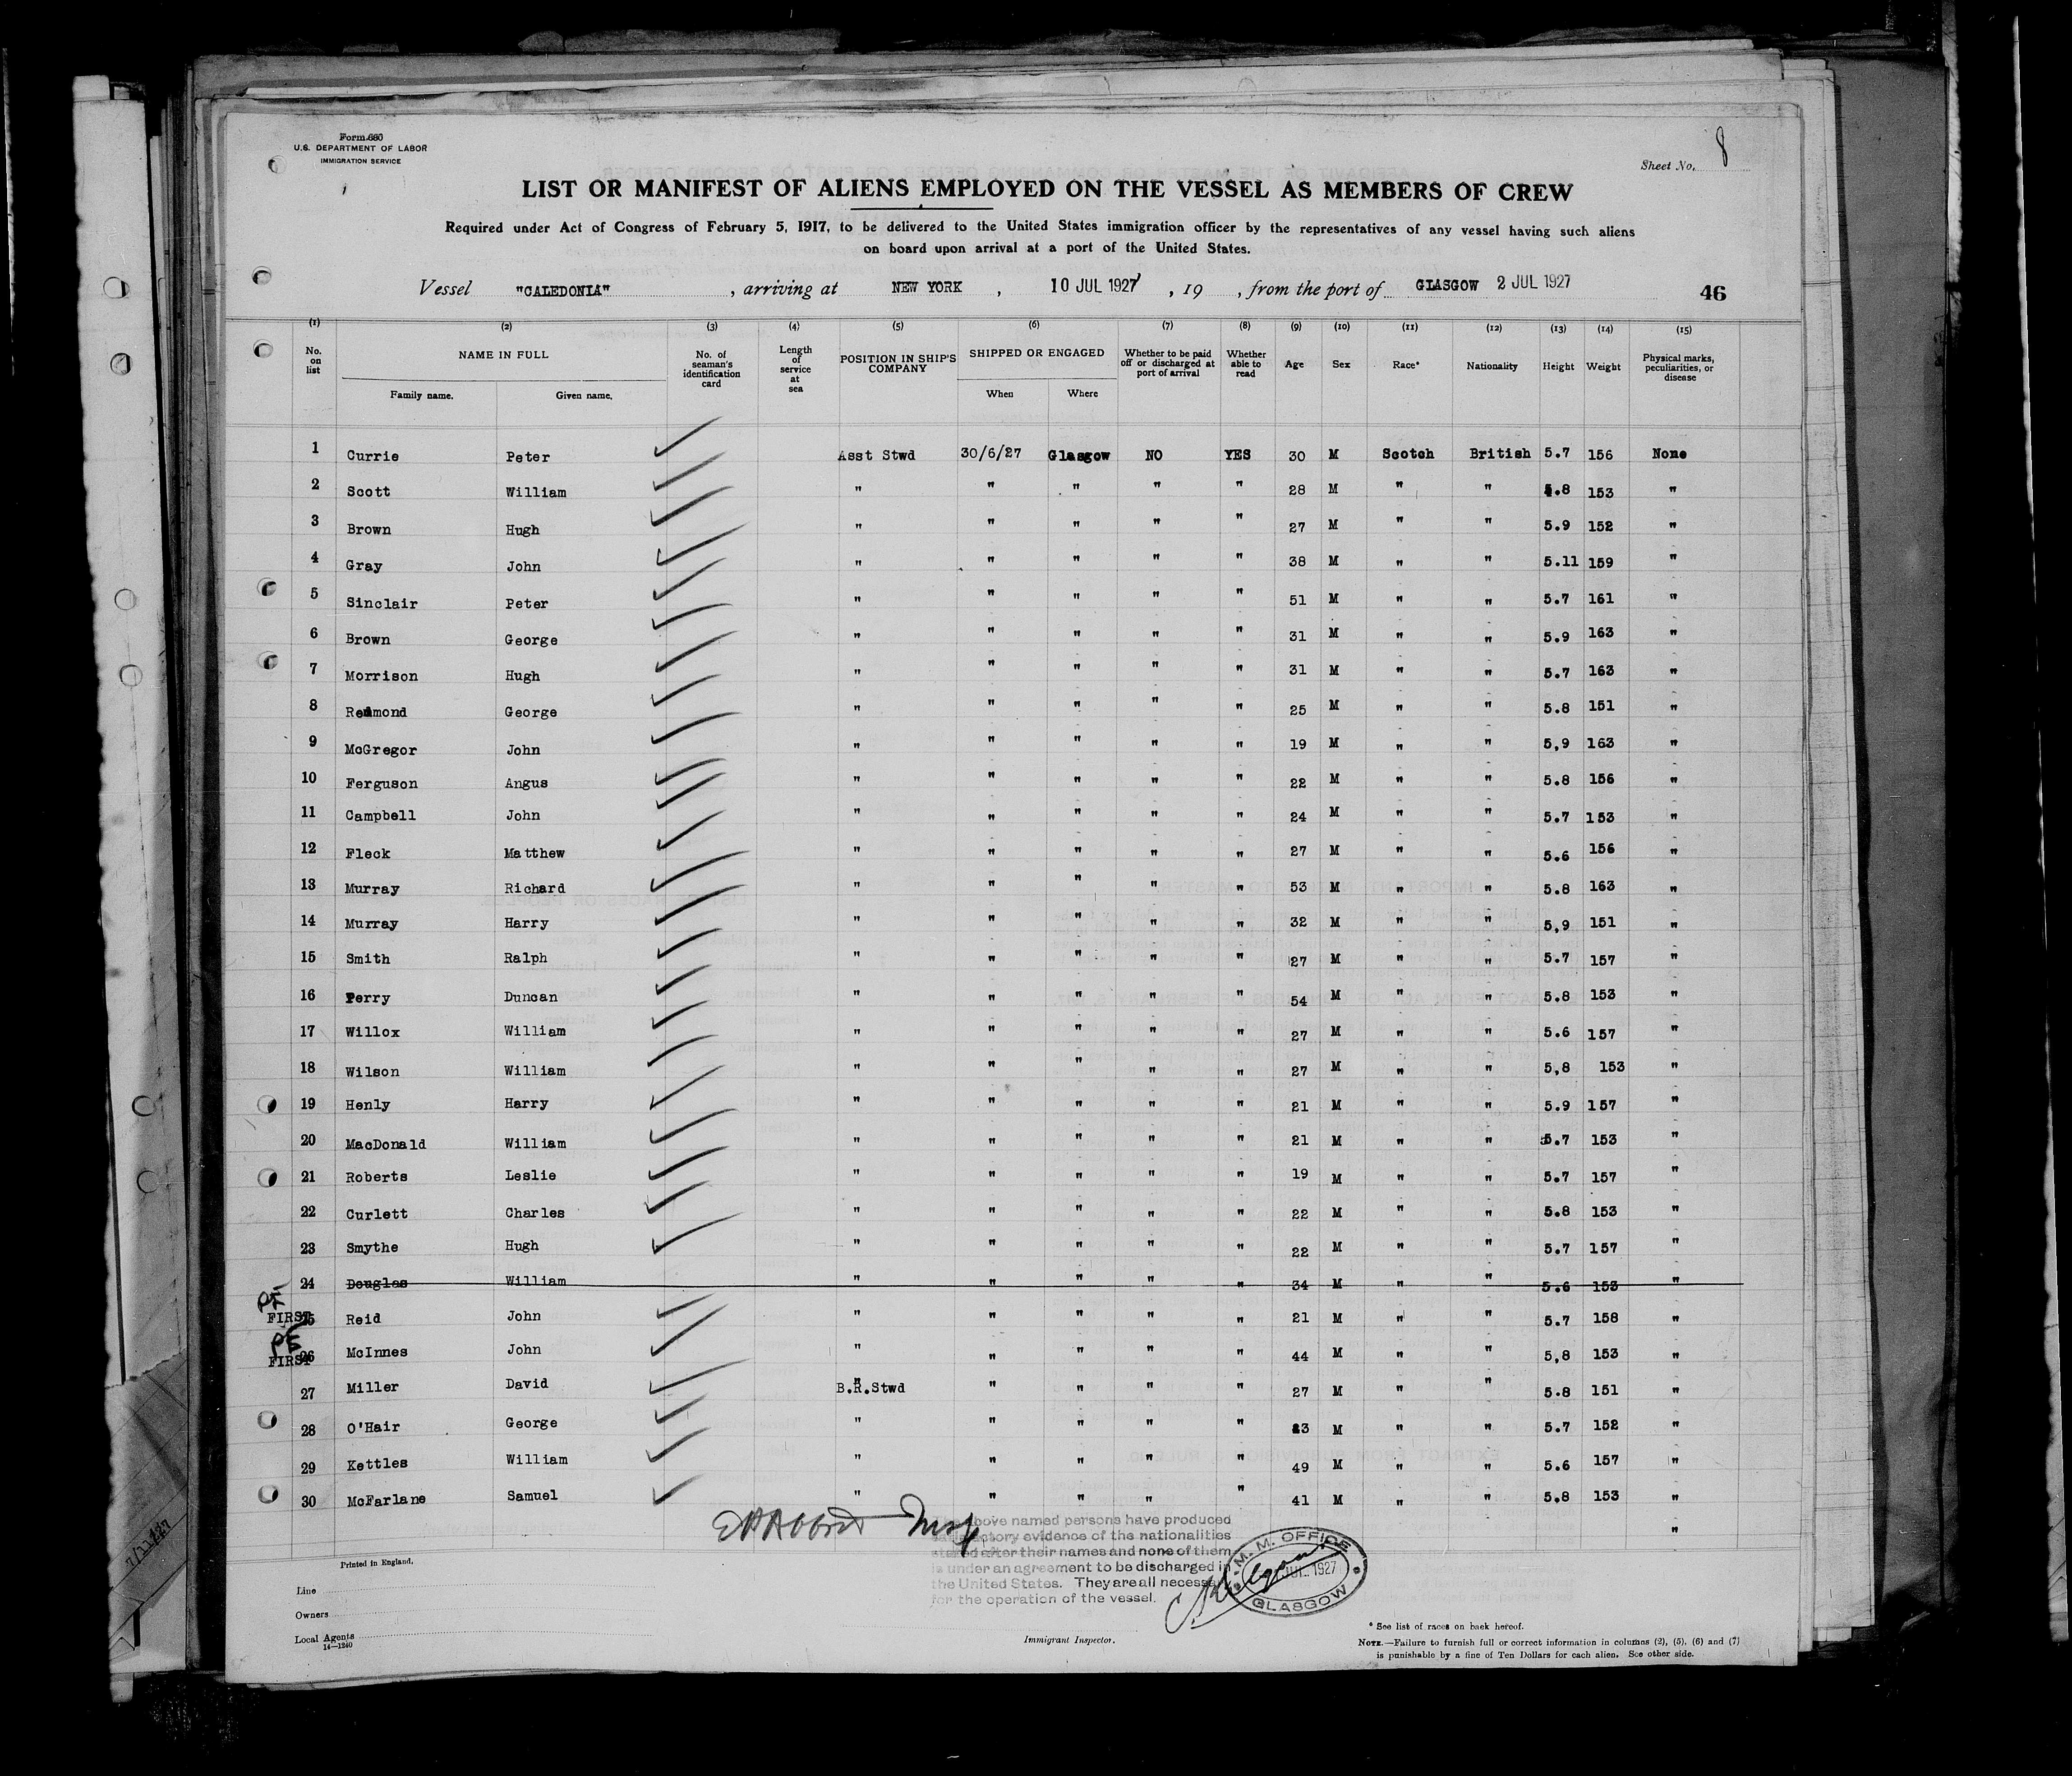 Form 680
U.S. DEPARTMENT OF LABOR
IMMIGRATION SERVICE
Sheet No. 8
LIST OR MANIFEST OF ALIENS EMPLOYED ON THE VESSEL AS MEMBERS OF CREW
Required under Act of Congress of February 5, 1917, to be delivered to the United States immigration officer by the representatives of any vessel having such aliens
on board upon arrival at a port of the United States.
Vessel "CALEDONIA", arriving at NEW YORK, 10 JUL 1927, 19, from the port of GLASGOW 2 JUL 1927
46
(1) (2) (3) (4) (5) (6) (7) (8) (9) (10) (11) (12) (13) (14) (15)
No. on list NAME IN FULL Family name. Given name. No. of seaman's identification card Length of service at sea POSITION IN SHIP'S COMPANY SHIPPED OR ENGAGED When Where Whether to be paid off or discharged at port of arrival Whether able to read Age Sex Race* Nationality Height Weight Physical marks, peculiarities, or disease
1 Currie Peter Asst Stwd 30/6/27 Glasgow NO YES 30 M Scotch British 5.7 156 None
2 Scott William " " " " " 28 M " " 5.8 153 "
3 Brown Hugh " " " " " 27 M " " 5.9 152 "
4 Gray John " " " " " 38 M " " 5.11 159 "
5 Sinclair Peter " " " " " 51 M " " 5.7 161 "
6 Brown George " " " " " 31 M " " 5.9 163 "
7 Morrison Hugh " " " " " 31 M " " 5.7 163 "
8 Redmond George " " " " " 25 M " " 5.8 151 "
9 McGregor John " " " " " 19 M " " 5,9 163 "
10 Ferguson Angus " " " " " 22 M " " 5.8 156 "
11 Campbell John " " " " " 24 M " " 5.7 153 "
12 Fleck Matthew " " " " " 27 M " " 5.6 156 "
13 Murray Richard " " " " " 53 M " " 5.8 163 "
14 Murray Harry " " " " " 32 M " " 5,9 151 "
15 Smith Ralph " " " " " 27 M " " 5.7 157 "
16 Perry Duncan " " " " " 54 M " " 5.8 153 "
17 Willox William " " " " " 27 M " " 5.6 157 "
18 Wilson William " " " " " 27 M " " 5,8 153 "
19 Henly Harry " " " " " 21 M " " 5.9 157 "
20 MacDonald William " " " " " 21 M " " 5.7 153 "
21 Roberts Leslie " " " " " 19 M " " 5.7 157 "
22 Curlett Charles " " " " " 22 M " " 5.8 153 "
23 Smythe Hugh " " " " " 22 M " " 5.7 157 "
24 Douglas William " " " " " 34 M " " 5.6 153 "
FIRST 25 Reid John " " " " " 21 M " " 5.7 158 "
FIRST 26 McInnes John " " " " " 44 M " " 5,8 153 "
27 Miller David B.R.Stwd " " " " 27 M " " 5.8 151 "
28 O'Hair George " " " " " 23 M " " 5.7 152 "
29 Kettles William " " " " " 49 M " " 5.6 157 "
30 McFarlane Samuel " " " " " 41 M " " 5.8 153 "
"
above named persons have produced
satisfactory evidence of the nationalities
stated after their names and none of them
is under an agreement to be discharged in
the United States. They are all necessary
for the operation of the vessel.
M. M. OFFICE
JUL 1927
GLASGOW
Printed in England.
Line
Owners
Local Agents
14—1240
Immigrant Inspector.
* See list of races on back hereof.
NOTE.—Failure to furnish full or correct information in columns (2), (5), (6) and (7)
is punishable by a fine of Ten Dollars for each alien. See other side.